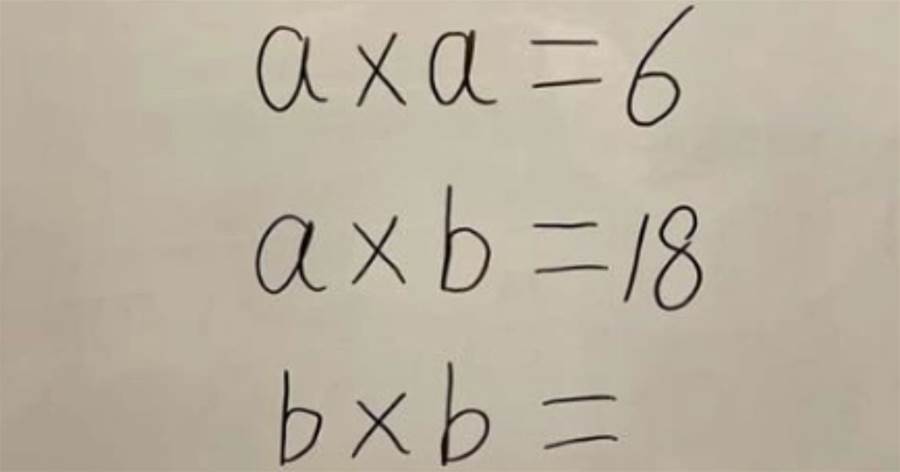 a×a=6
a×b=18
b×b=